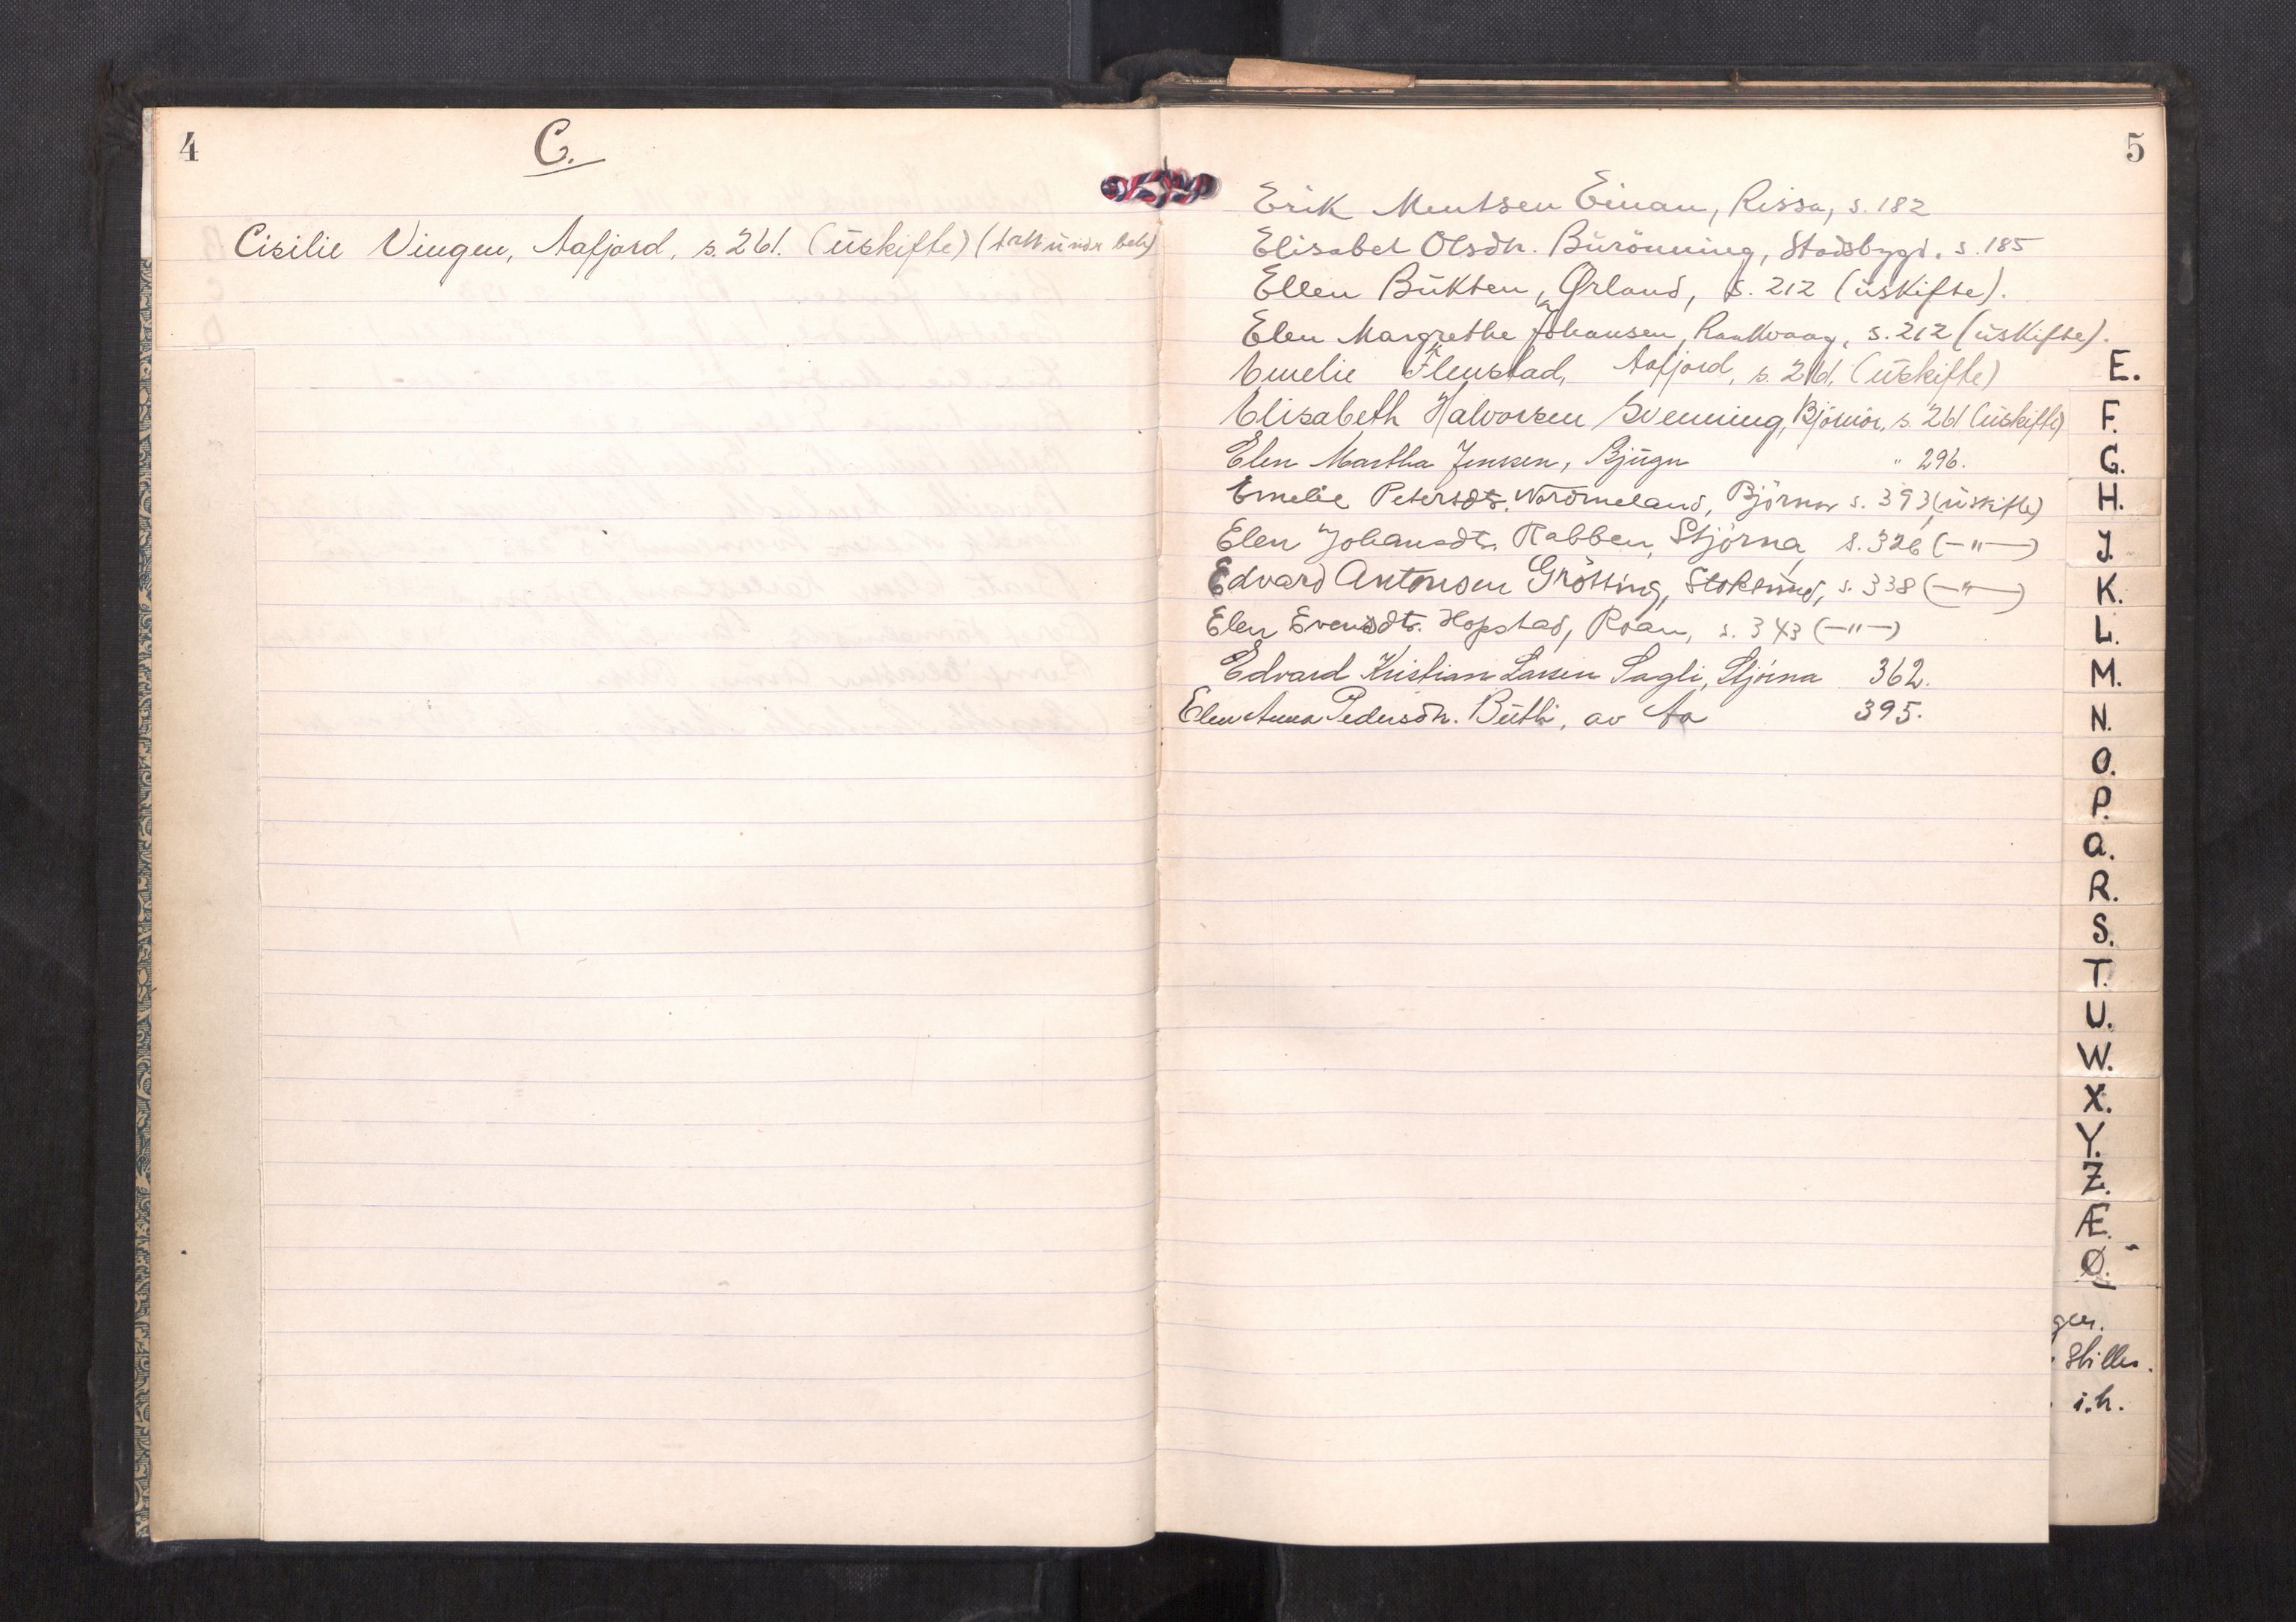 4
C.
Cisilie Vingen, Aafjord, s. 261. (uskifte)
5
Erik Mentsen Einan, Rissa, s. 182
Elisabet Olsdtr. Burönning, Stadsbygd. s. 185
Ellen Bukten, Ørland, s. 212 (uskifte).
Elen Margrethe Johansen, Raakvaag, s. 212 (uskifte).
Emelie Flenstad, Aafjord, s. 261. (uskifte)
Elisabeth Halvorsen Svenning, Björnör, s. 261 (uskifte)
Elen Martha Jensen, Bjugn " 296.
Emelie Petersdtr. Nordmeland, Björnör s. 393 (uskifte)
Elen Johansdtr. Rabben, Stjörna, s. 326 (—"—)
Edvard Antonsen Grötting, Stoksund, s. 338 (—"—)
Elen Svensdtr. Hopstad, Roan, s. 343 (—"—)
Edvard Kristian Larsen Sagli, Stjörna 362.
Elen Anna Pedersdtr. Butli, av Aa 395.
E.
F.
G.
H.
J.
K.
L.
M.
N.
O.
P.
Q.
R.
S.
T.
U.
W.
X.
Y.
Z.
Æ.
Ø.
gen.
i.h.